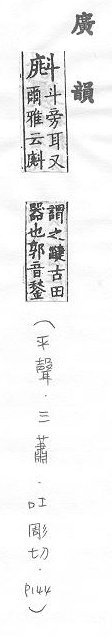 廣韻
𣂁
斗旁耳又
爾雅云𣂁
謂之疀古田
器也郭音鍫
(平聲．三蕭．吐彫切．P144)